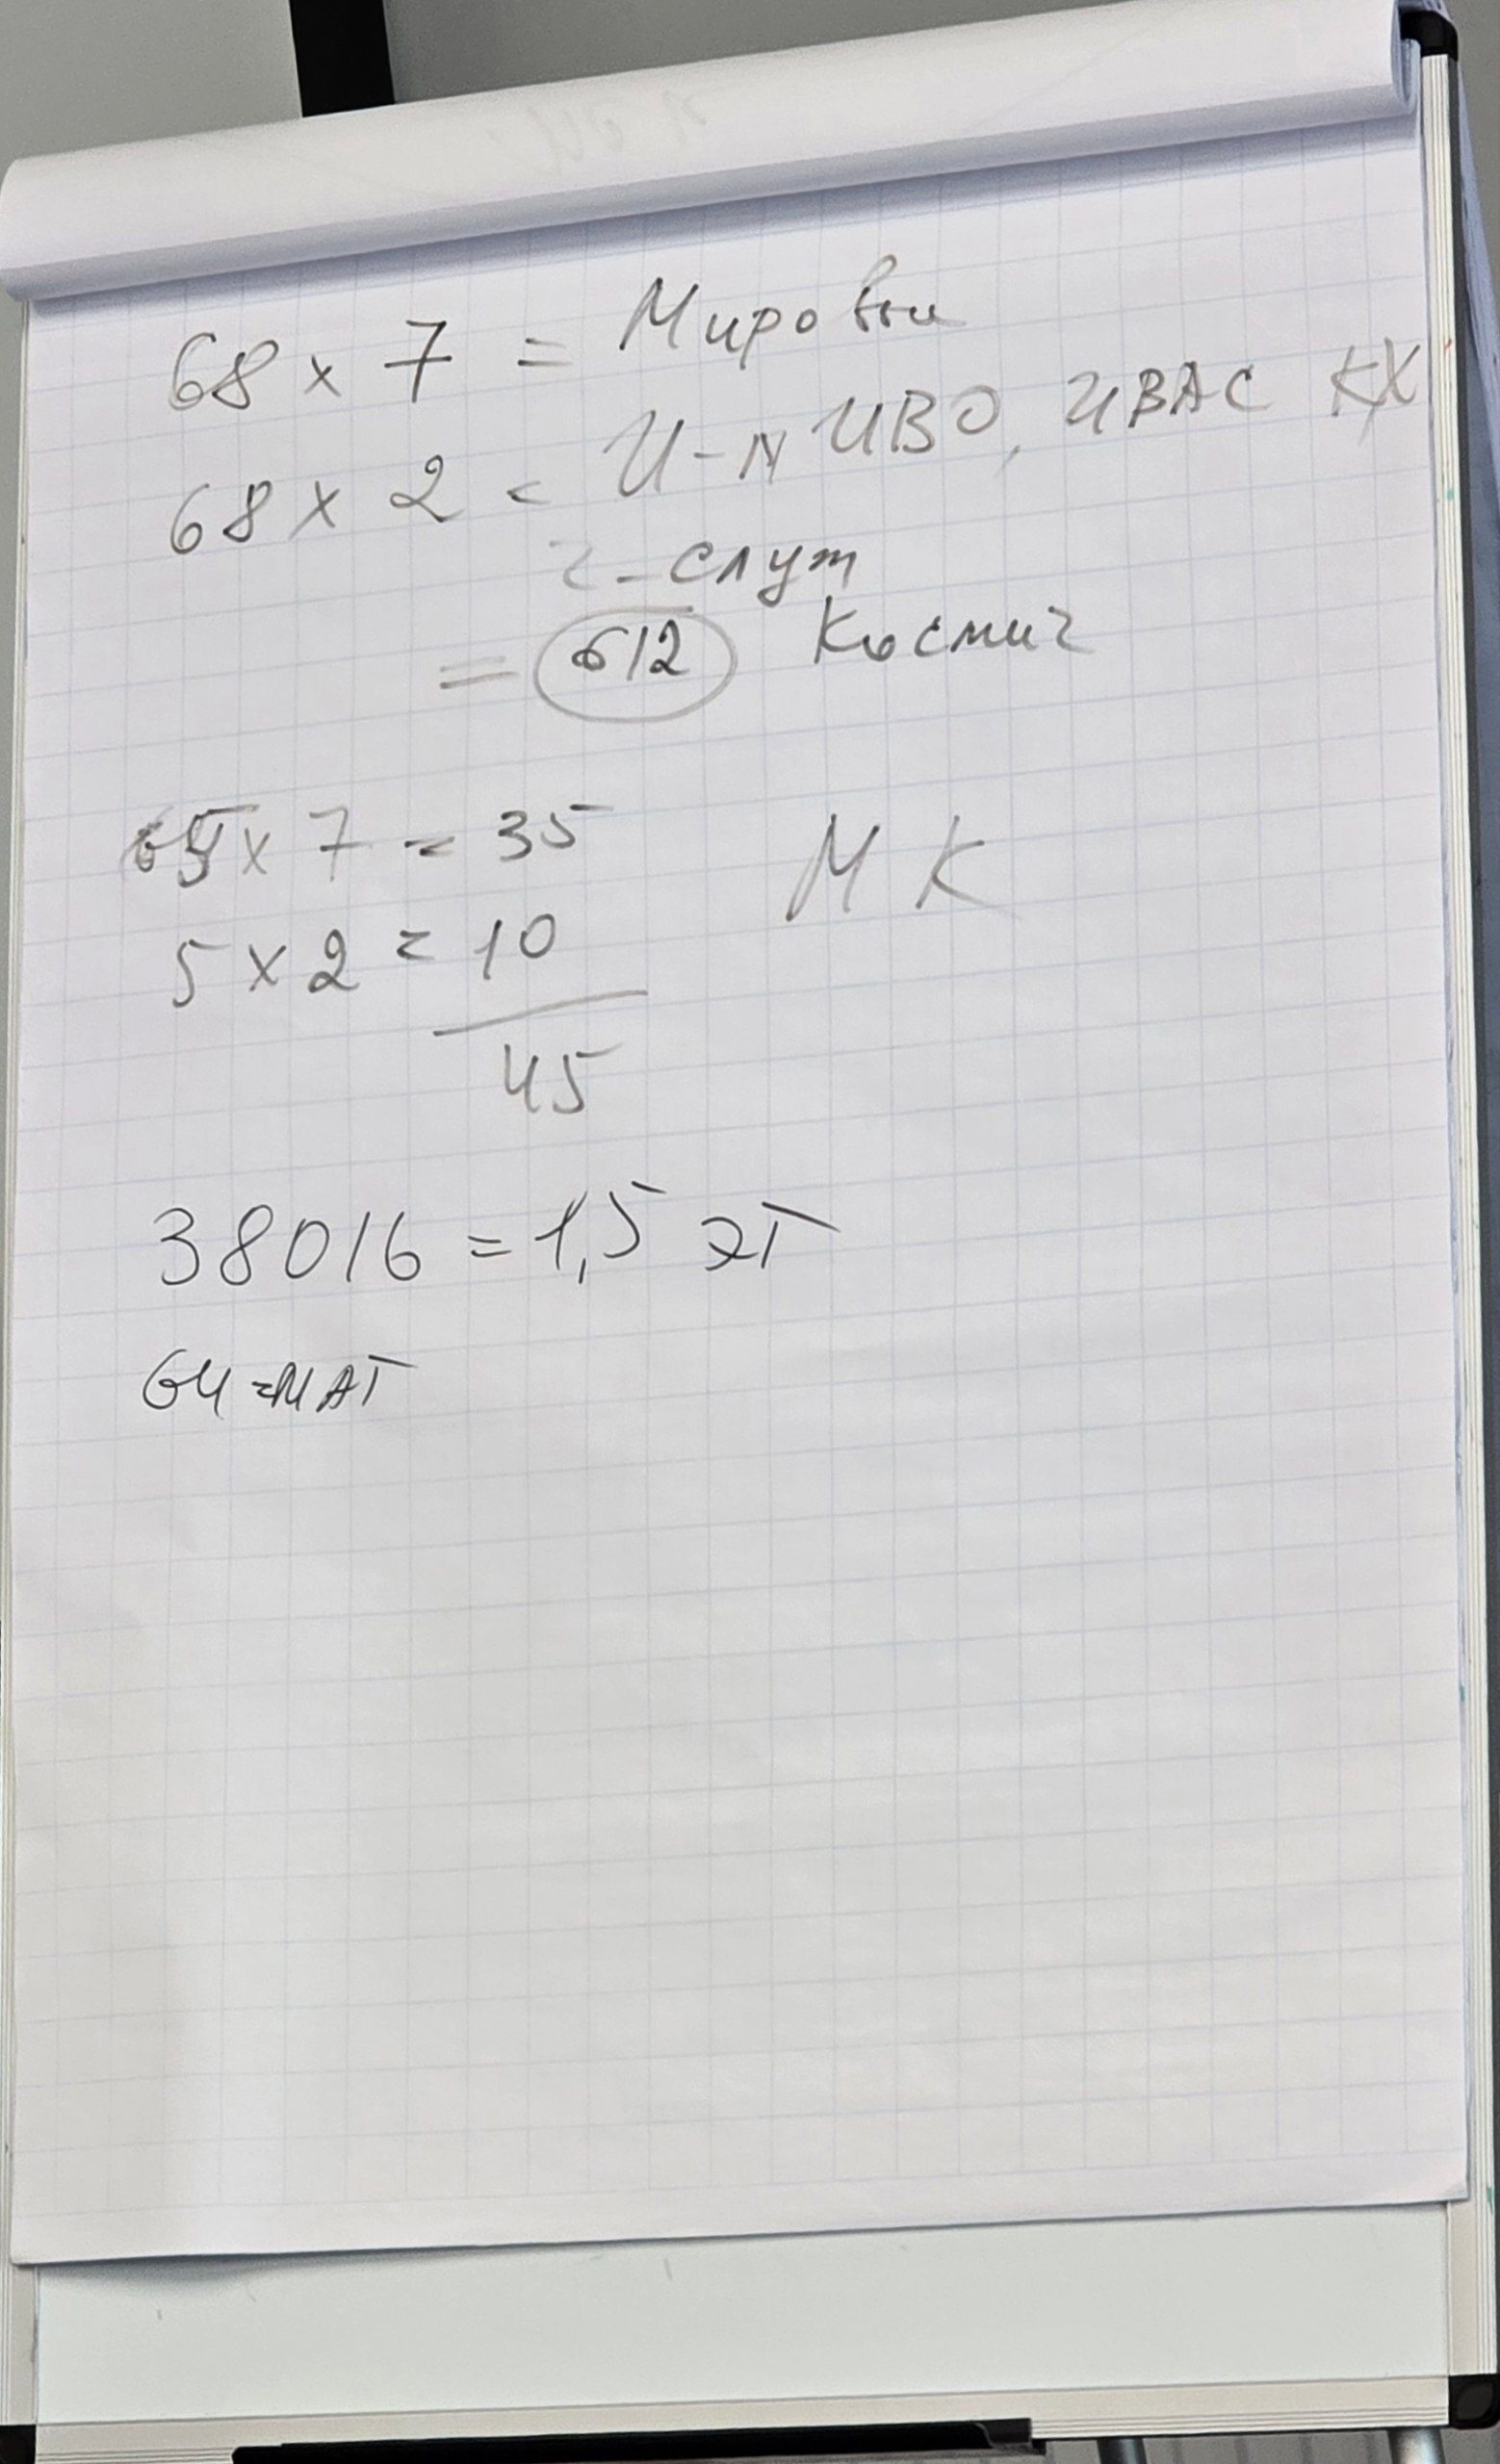 68 x 7 = Мировы
68 x 2 = И-н ИВО, ИВАС КХ
2-служ
= 612 Космич
5 x 7 = 35 МК
5 x 2 = 10
45
38016 = 1,5 эт
64 = МАТ